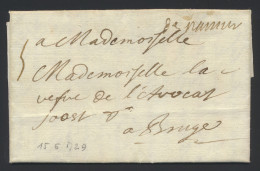 de namur
a Mademoiselle
Mademoiselle la
vefve de l'Advocat
joost
a Bruge
15 6 1729